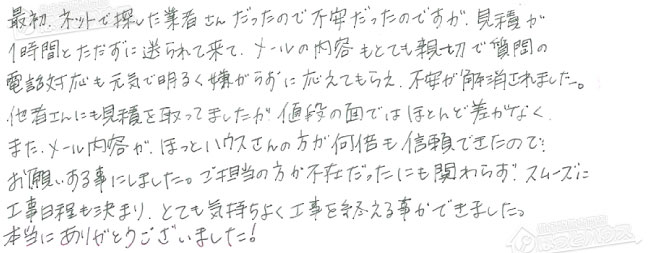 最初、ネットで探した業者さんだったので不安だったのですが、見積が
1時間とたたずに送られて来て、メールの内容もとても親切で質問の
電話対応も元気で明るく嫌がらずに応えてもらえ、不安が解消されました。
他者さんにも見積を取ってましたが値段の面ではほとんど差がなく、
また、メール内容が、ほっとハウスさんの方が何倍も信頼できたので、
お願いする事にしました。ご担当の方が不在だったにも関わらず、スムーズに
工事日程も決まり、とても気持ちよく工事を終える事ができました。
本当にありがとうございました!